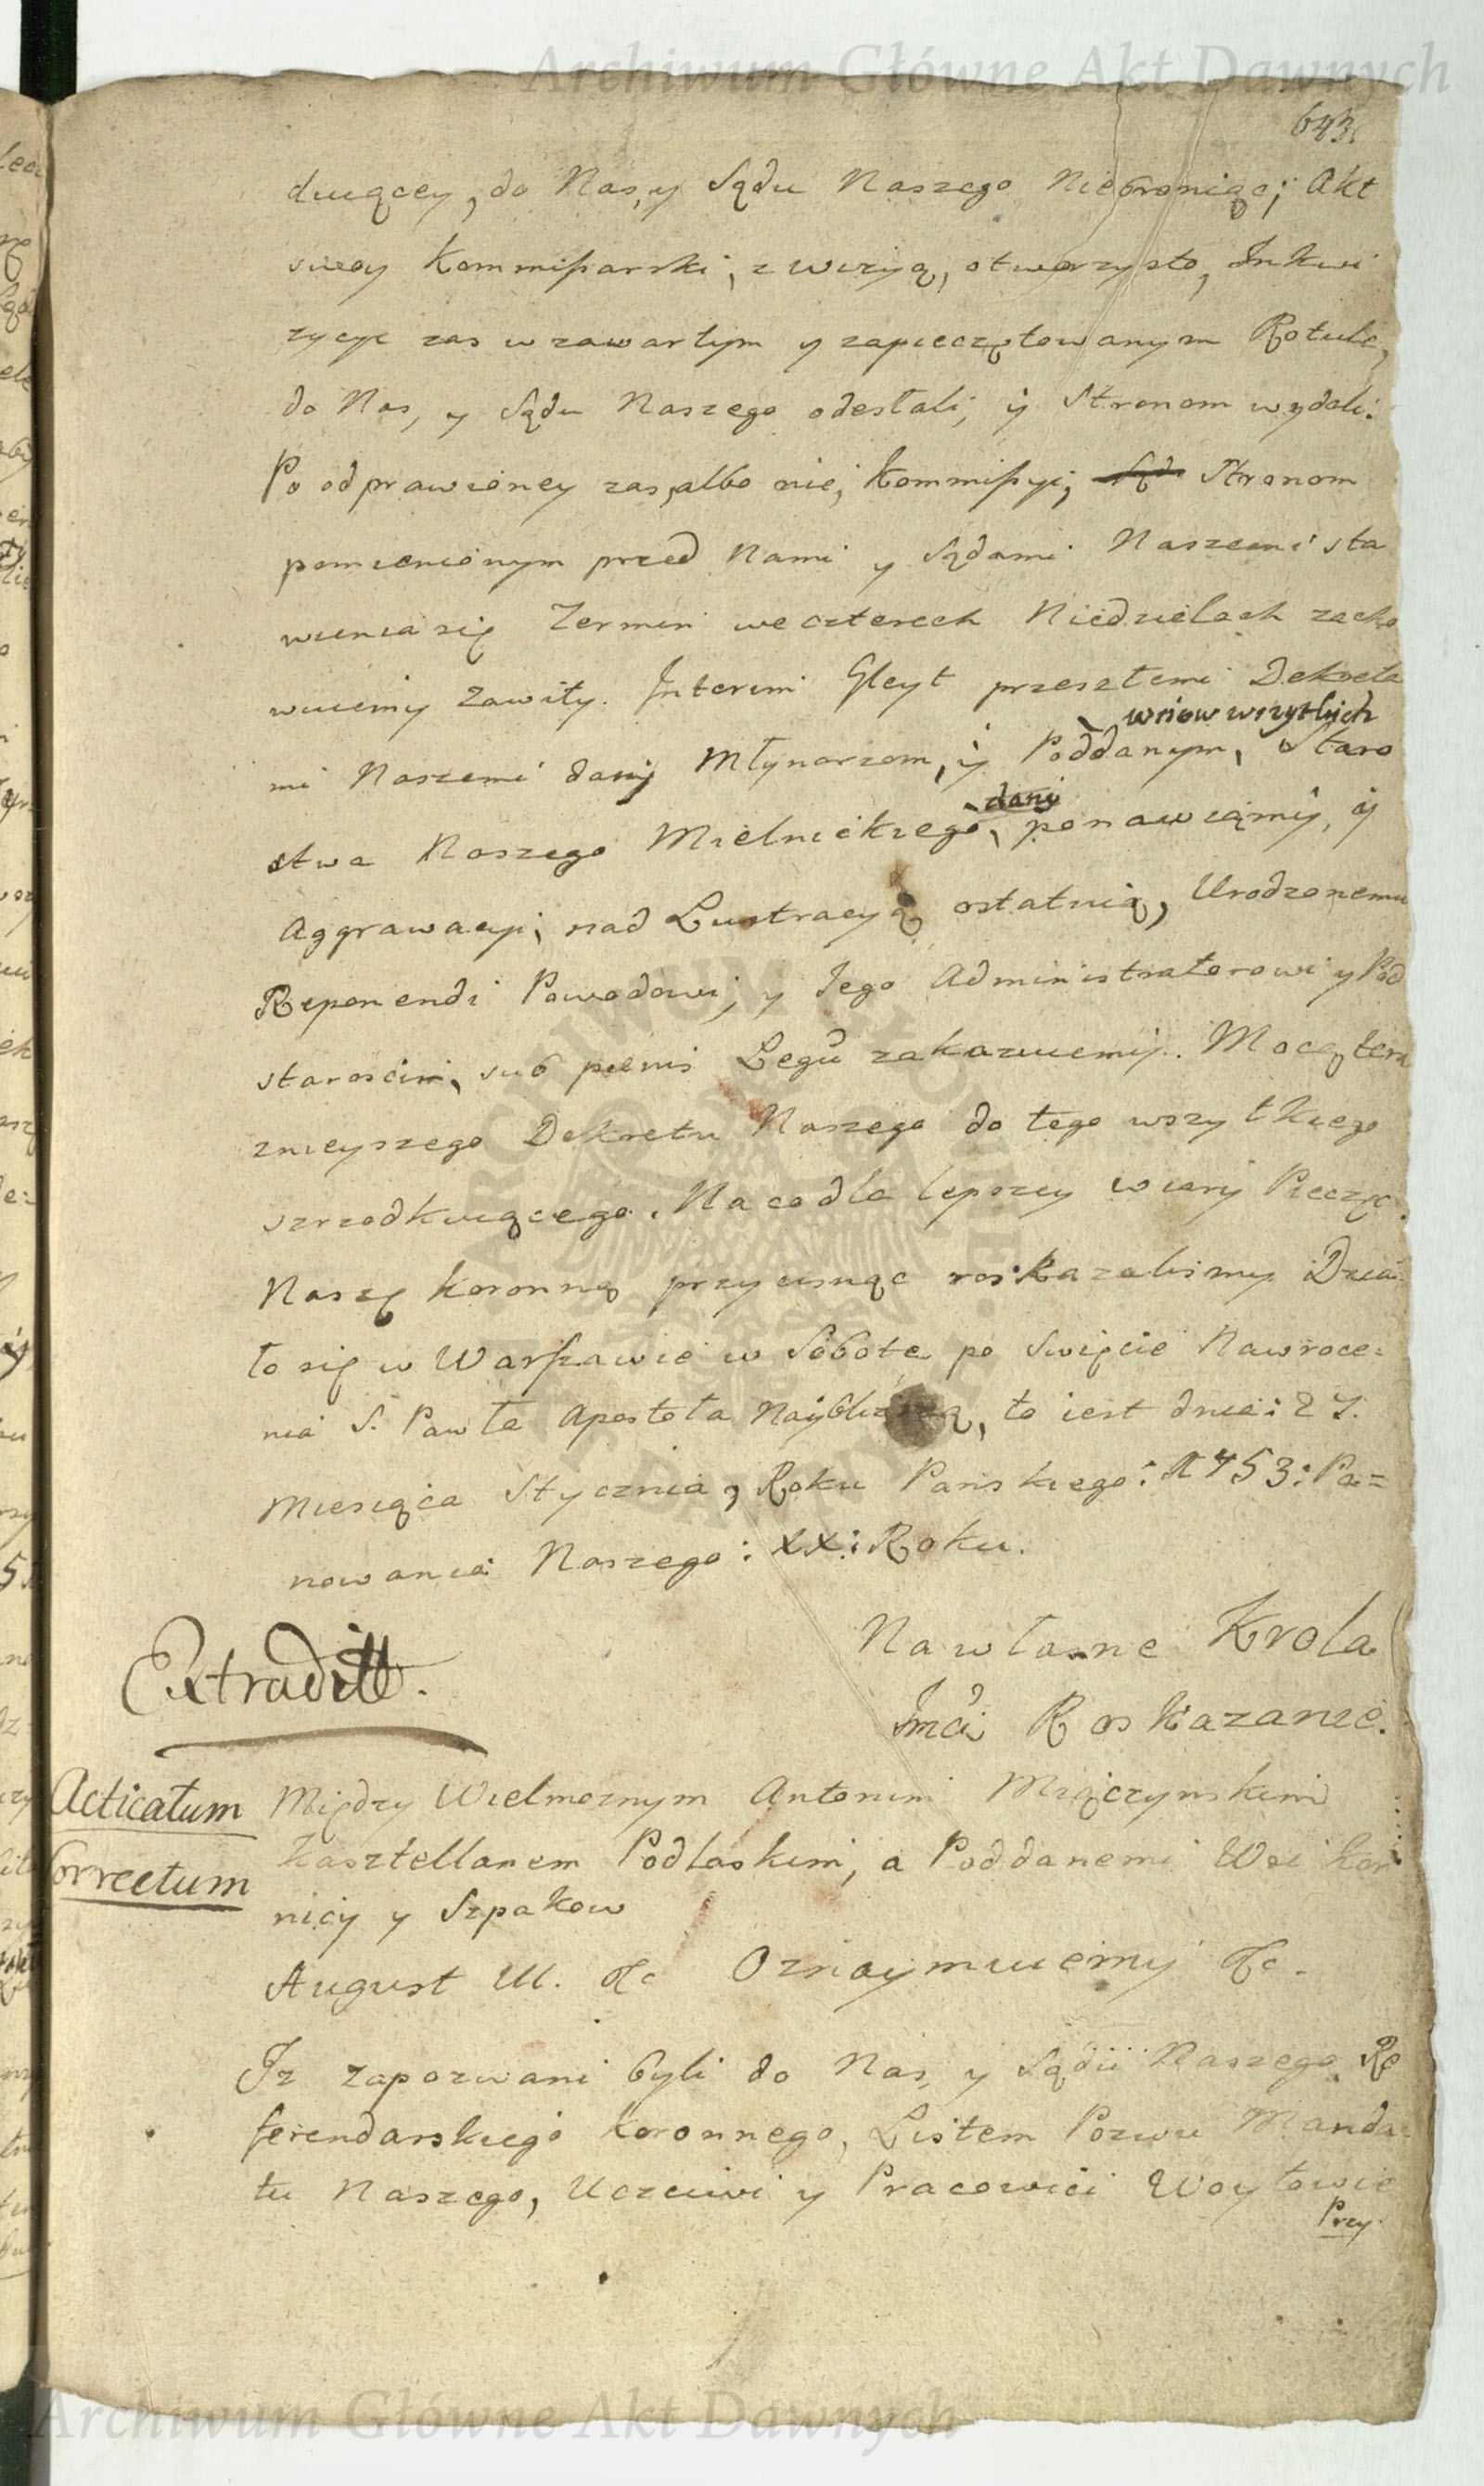 Archiwum Główne Akt Dawnych
643.
duiącey, do Nas, y Sądu Naszego Niebroniąc; Akt
swoy Kommissarski, z wizyą, otworzysto, Inkwi
zycye zas w zawartym y zapieczętowanym Rotule,
do Nas, y Sądu Naszego odesłali, y Stronom wydali.
Po odprawioney zas, albo nie, Kommissyi, Stronom
pomienionym przed Nami y Sądami Naszemi sta
wienia się Termin we czterech Niedzielach zacho
wuiemy Zawity. Interim Gleyt przeszłemi Dekreta
wsiow wszytkich
mi Naszemi dany Młynarzom, y Poddanym, Staro
dany
stwa Naszego Mielnickiego, ponawiamy, y
Aggrawacyi, nad Lustracyą ostatnią, Urodzonemu
Reponendi Powodowi, y Jego Administratorowi y Pod
staroscim, sub penis Legũ zakazuiemy. Mocą tera
znieyszego Dekretu Naszego do tego wszytkiego
szrzodkuiącego. Na co dla lepszey wiary Pieczęć
Naszą koronną przycisnąc roskazalismy. Dzia
ło się w Warszawie w Sobotę po Swięcie Nawroce=
nia S. Pawła Apostoła Nayblizszą, to iest dnia: 27.
Miesiąca Stycznia, Roku Panskiego: 1753: Pa=
nowania Naszego: XX: Roku.
Na własne Krola
Jmći Roskazanie.
Extraditt.
Acticatum
Correctum
Między Wielmoznym Antonim Miączynskim
Kasztellanem Podlaskim, a Poddanemi Wsi Kor
nicy y Szpakow
August III. &c Oznaymuiemy &c.
Iz zapozwani byli do Nas, y Sądu Naszego Re
ferendarskiego Koronnego, Listem Pozwu Manda=
tu Naszego, Uczciwi y Pracowici Woytowie
Przy
Archiwum Główne Akt Dawnych